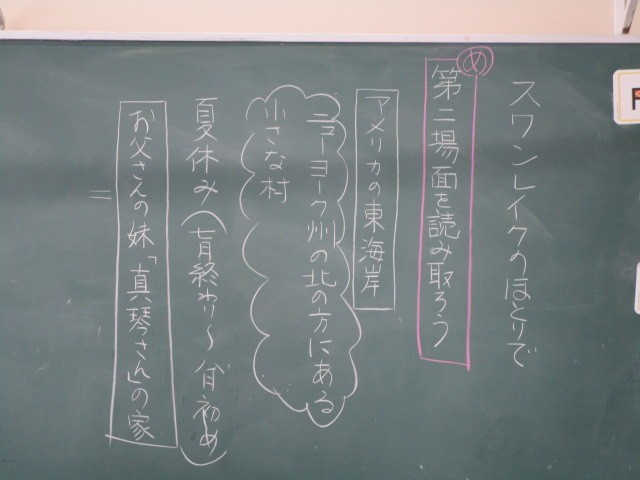 スワンレイクのほとりで
め
第二場面を読み取ろう
アメリカの東海岸
ニューヨーク州の北の方にある
小さな村
夏休み(七月終わり〜八月初め)
お父さんの妹「真琴さん」の家
＝